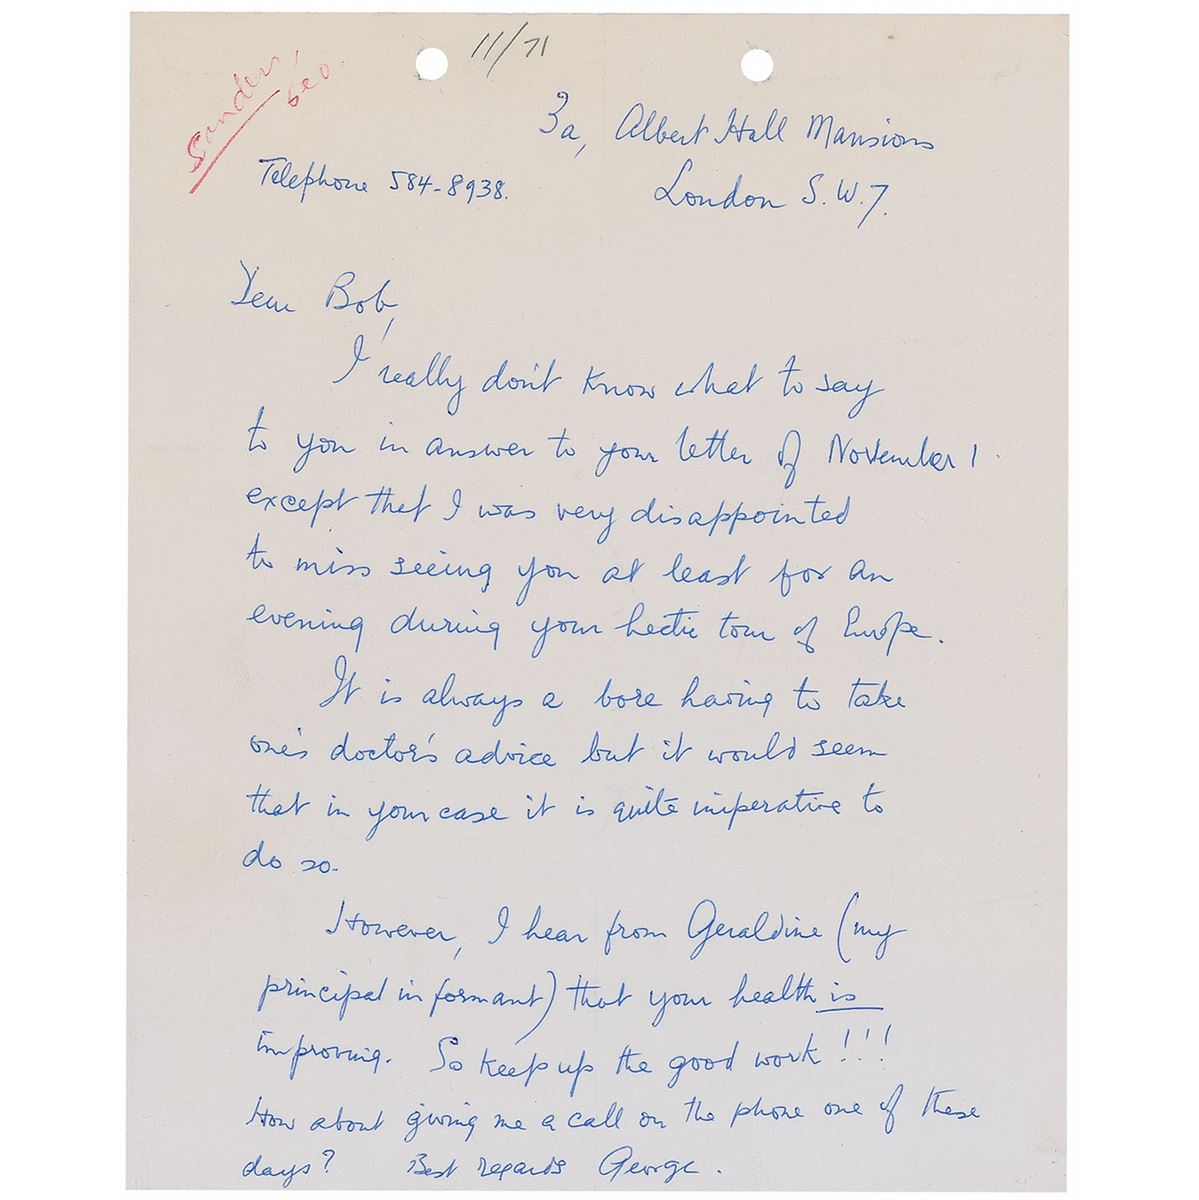 11/71
Sanders,
Geo
3a, Albert Hall Mansions
Telephone 584-8938.
London S.W.7.
Dear Bob,
I really don't know what to say
to you in answer to your letter of November 1
except that I was very disappointed
to miss seeing you at least for an
evening during your hectic tour of Europe.
It is always a bore having to take
one's doctor's advice but it would seem
that in your case it is quite imperative to
do so.
However, I hear from Geraldine (my
principal informant) that your health is
improving. So keep up the good work!!!
How about giving me a call on the phone one of these
days? Best regards George.